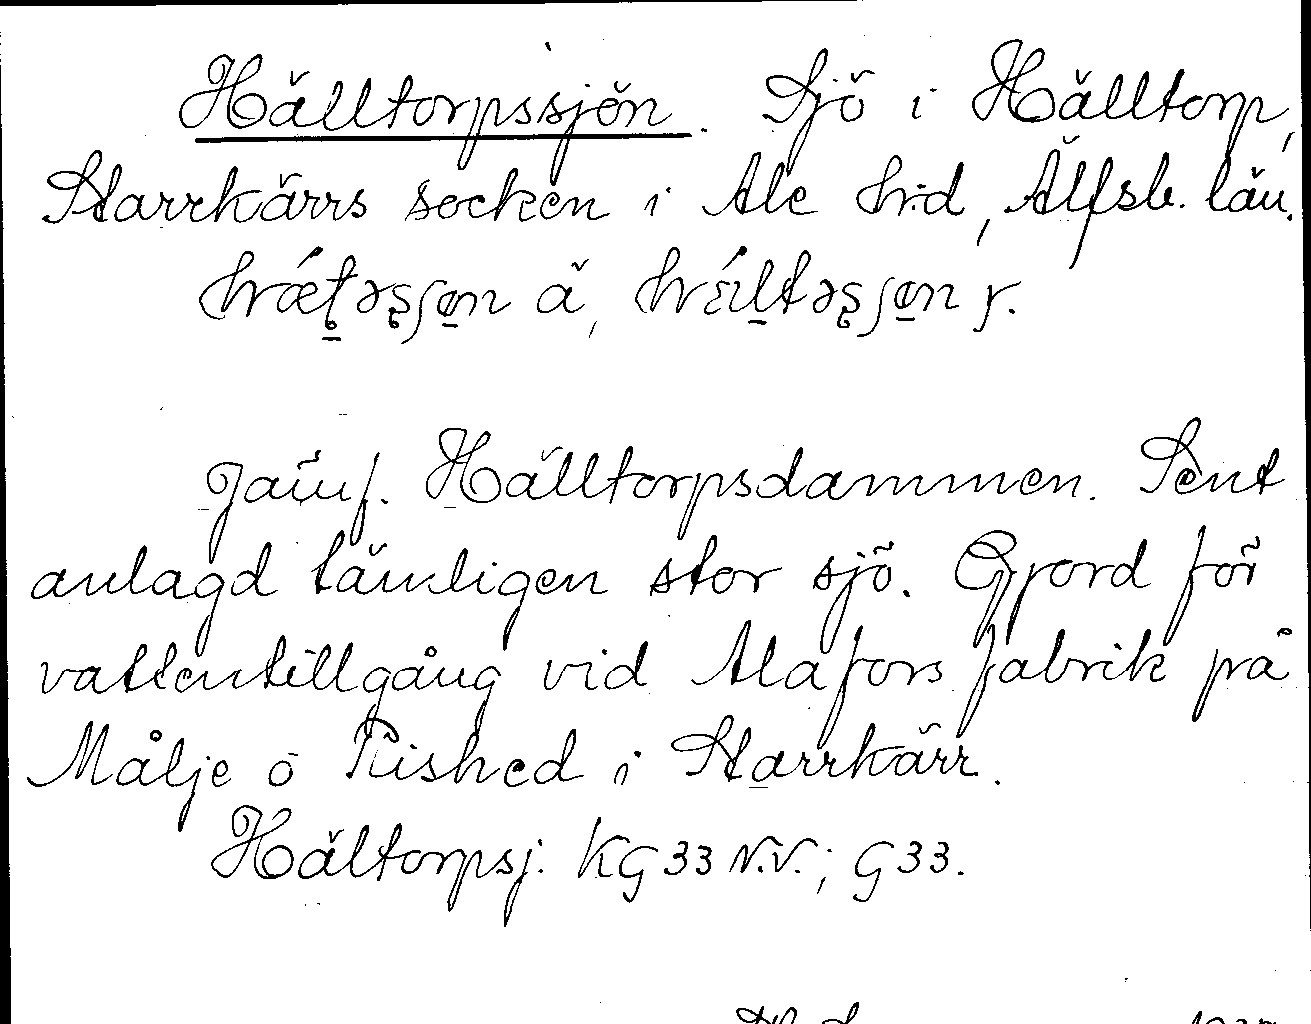 Hälltorpssjön. Sjö i Hälltorp,
Starrkärrs socken i Ale hrd, Älfsb. län.
ä, y.
Jämf. Hälltorpsdammen. Sent
anlagd tämligen stor sjö. Gjord för
vattentillgång vid Alafors fabrik på
Målje o Rished i Starrkärr.
Hältorpsj. KG 33 N.V.; G 33.